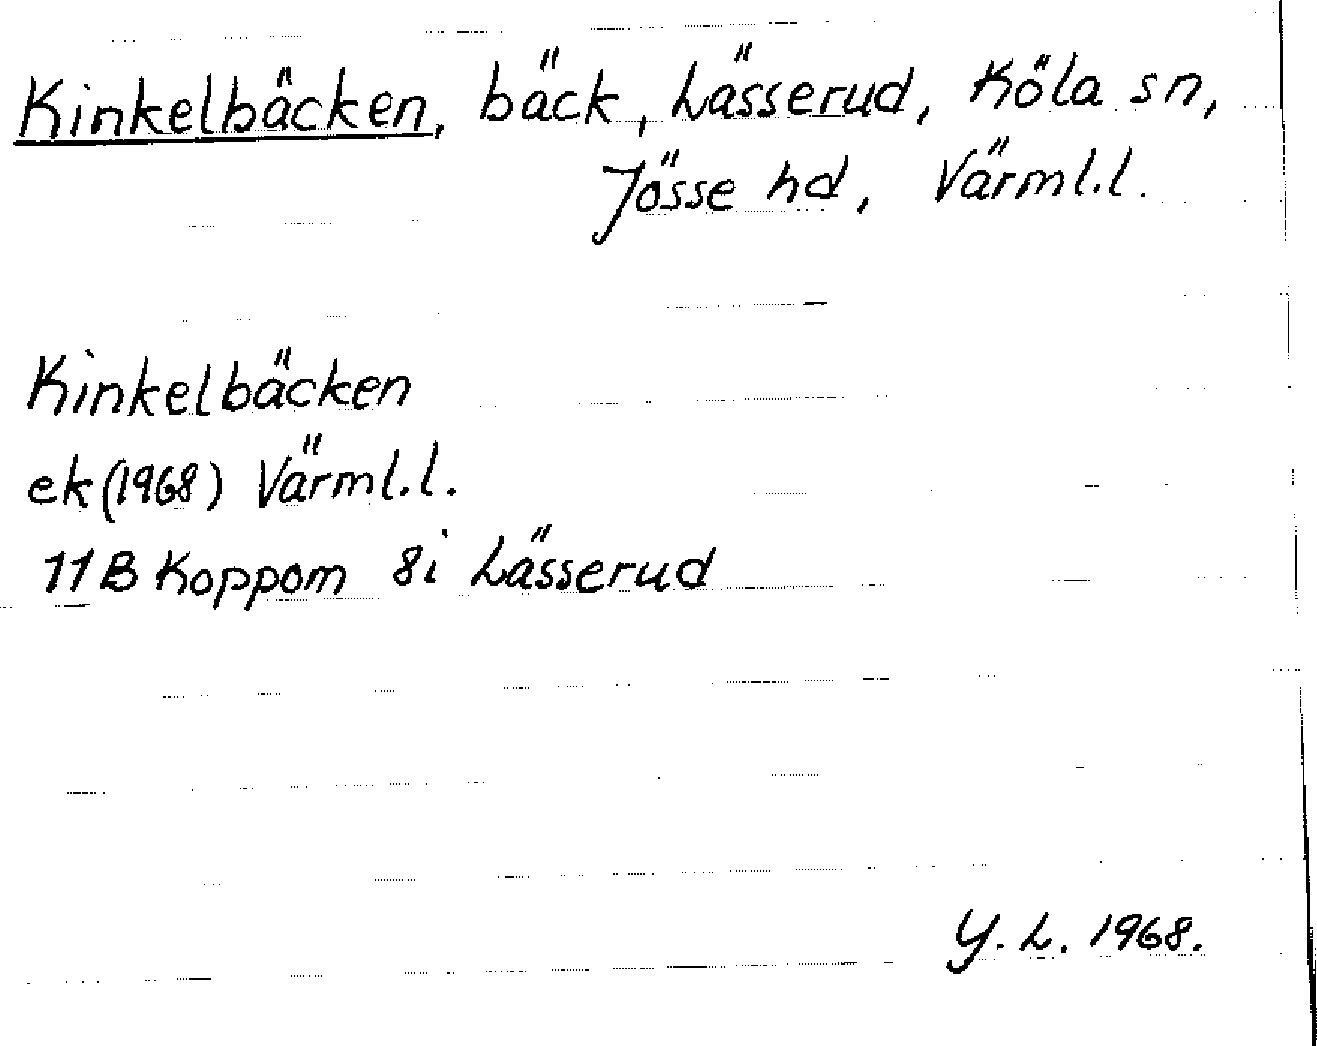 Kinkelbäcken, bäck, Lässerud, Köla sn,
Jösse hd, Värml.l.
Kinkelbäcken
ek (1968) Värml.l.
11B Koppom 8i Lässerud
Y. L. 1968.